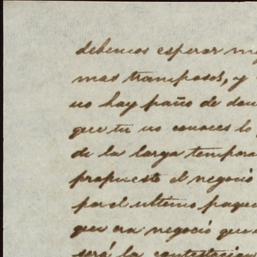 debemos esperar
mas tramposos, y
no hay paño de don
que tu no conoces lo
de la larga tempora
propuesto el negocio
por el ultimo paque
que era negocio que
será la contestacion